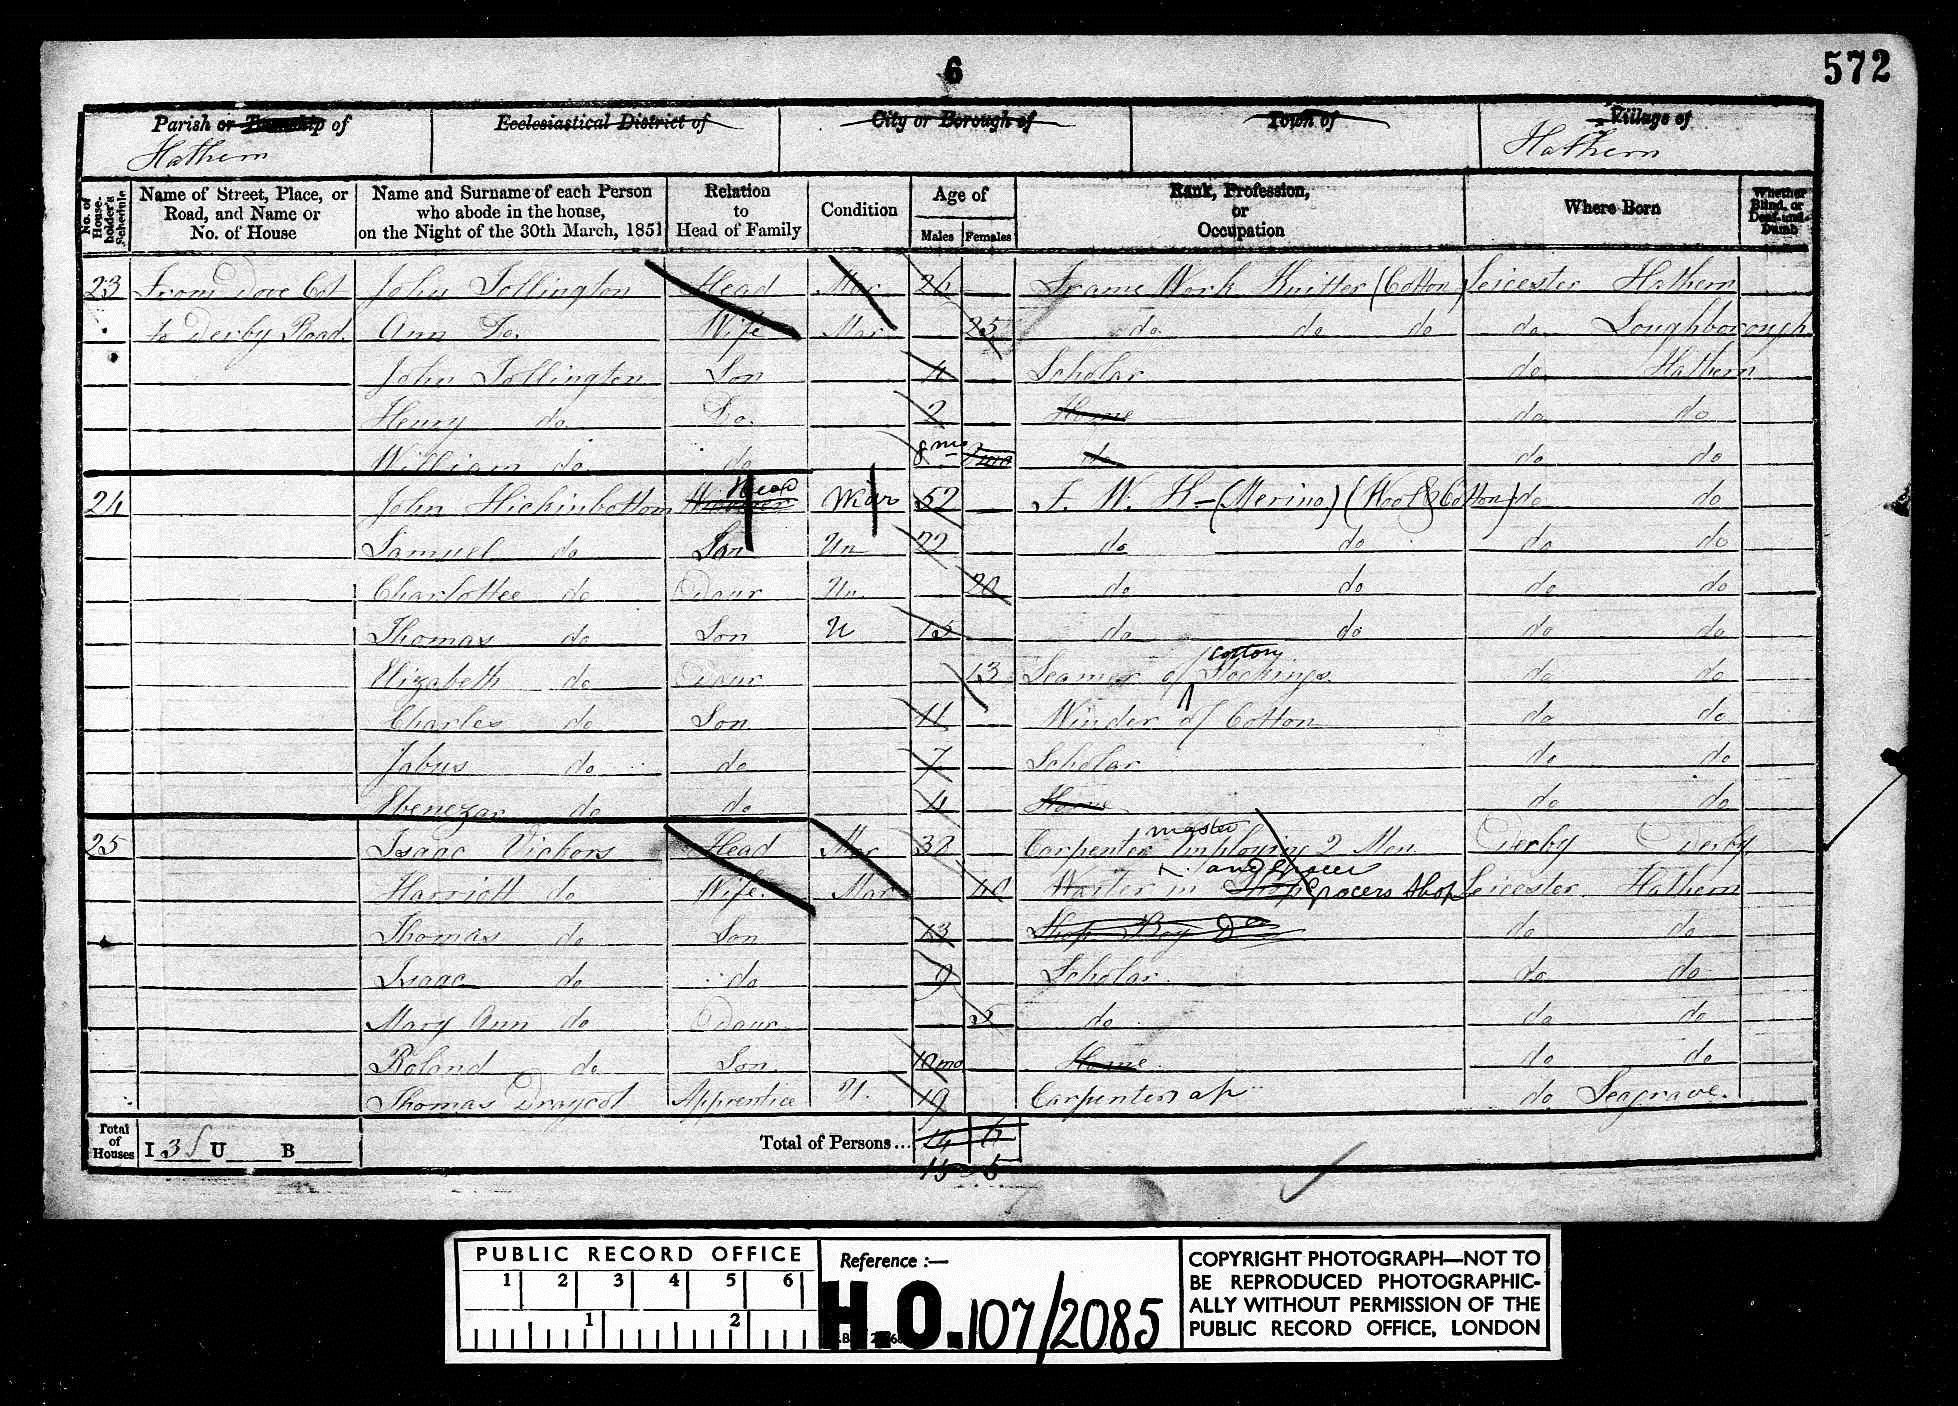 6
572
Parish or Township of
Hathern
Ecclesiastical District of
City or Borough of
Town of
Village of
Hathern
No. of House-holder's Schedule
Name of Street, Place, or Road, and Name or No. of House
Name and Surname of each Person who abode in the house, on the Night of the 30th March, 1851
Relation to Head of Family
Condition
Age of
Males Females
Rank, Profession, or Occupation
Where Born
Whether Blind, or Deaf-and-Dumb
23 From Dove Cot John Tollington Head Mar 26 Frame Work Knitter (Cotton) Leicester Hathern
to Derby Road Ann Do. Wife Mar 25 do do do do Loughborough
John Tollington Son 4 Scholar do Hathern
Henry do Do. 2 Home do do
William do do 8 mo do do do
24 John Hickinbottom Head Widr 52 F. W. K (Merino) (Wool & Cotton) do do
Samuel do Son Un 22 do do do do
Charlottee do Daur Un 20 do do do do
Thomas do Son U 15 do do do do
Elizabeth do Daur 13 Seamer of cotton Stockings do do
Charles do Son 11 Winder of Cotton do do
Jabus do do 7 Scholar do do
Ebenezar do do 4 Home do do
25 Isaac Vickers Head Mar 32 Carpenter master Employing 2 Men Derby Derby
and Grocer
Harriott do Wife Mar 40 Waiter in Shop Grocers Shop Leicester Hathern
Thomas do Son 13 Shop Boy Do do do
Isaac do do 9 Scholar do do
Mary Ann do Daur 5 do do do
Roland do Son 10 mo Home do do
Thomas Draycot Apprentice U. 19 Carpenters ap do Seagrave.
Total of Houses I 3 U B
Total of Persons... 14 6
15 5
PUBLIC RECORD OFFICE
1 2 3 4 5 6
1 2
Reference :—
H.O. 107/2085
COPYRIGHT PHOTOGRAPH—NOT TO
BE REPRODUCED PHOTOGRAPHIC-
ALLY WITHOUT PERMISSION OF THE
PUBLIC RECORD OFFICE, LONDON